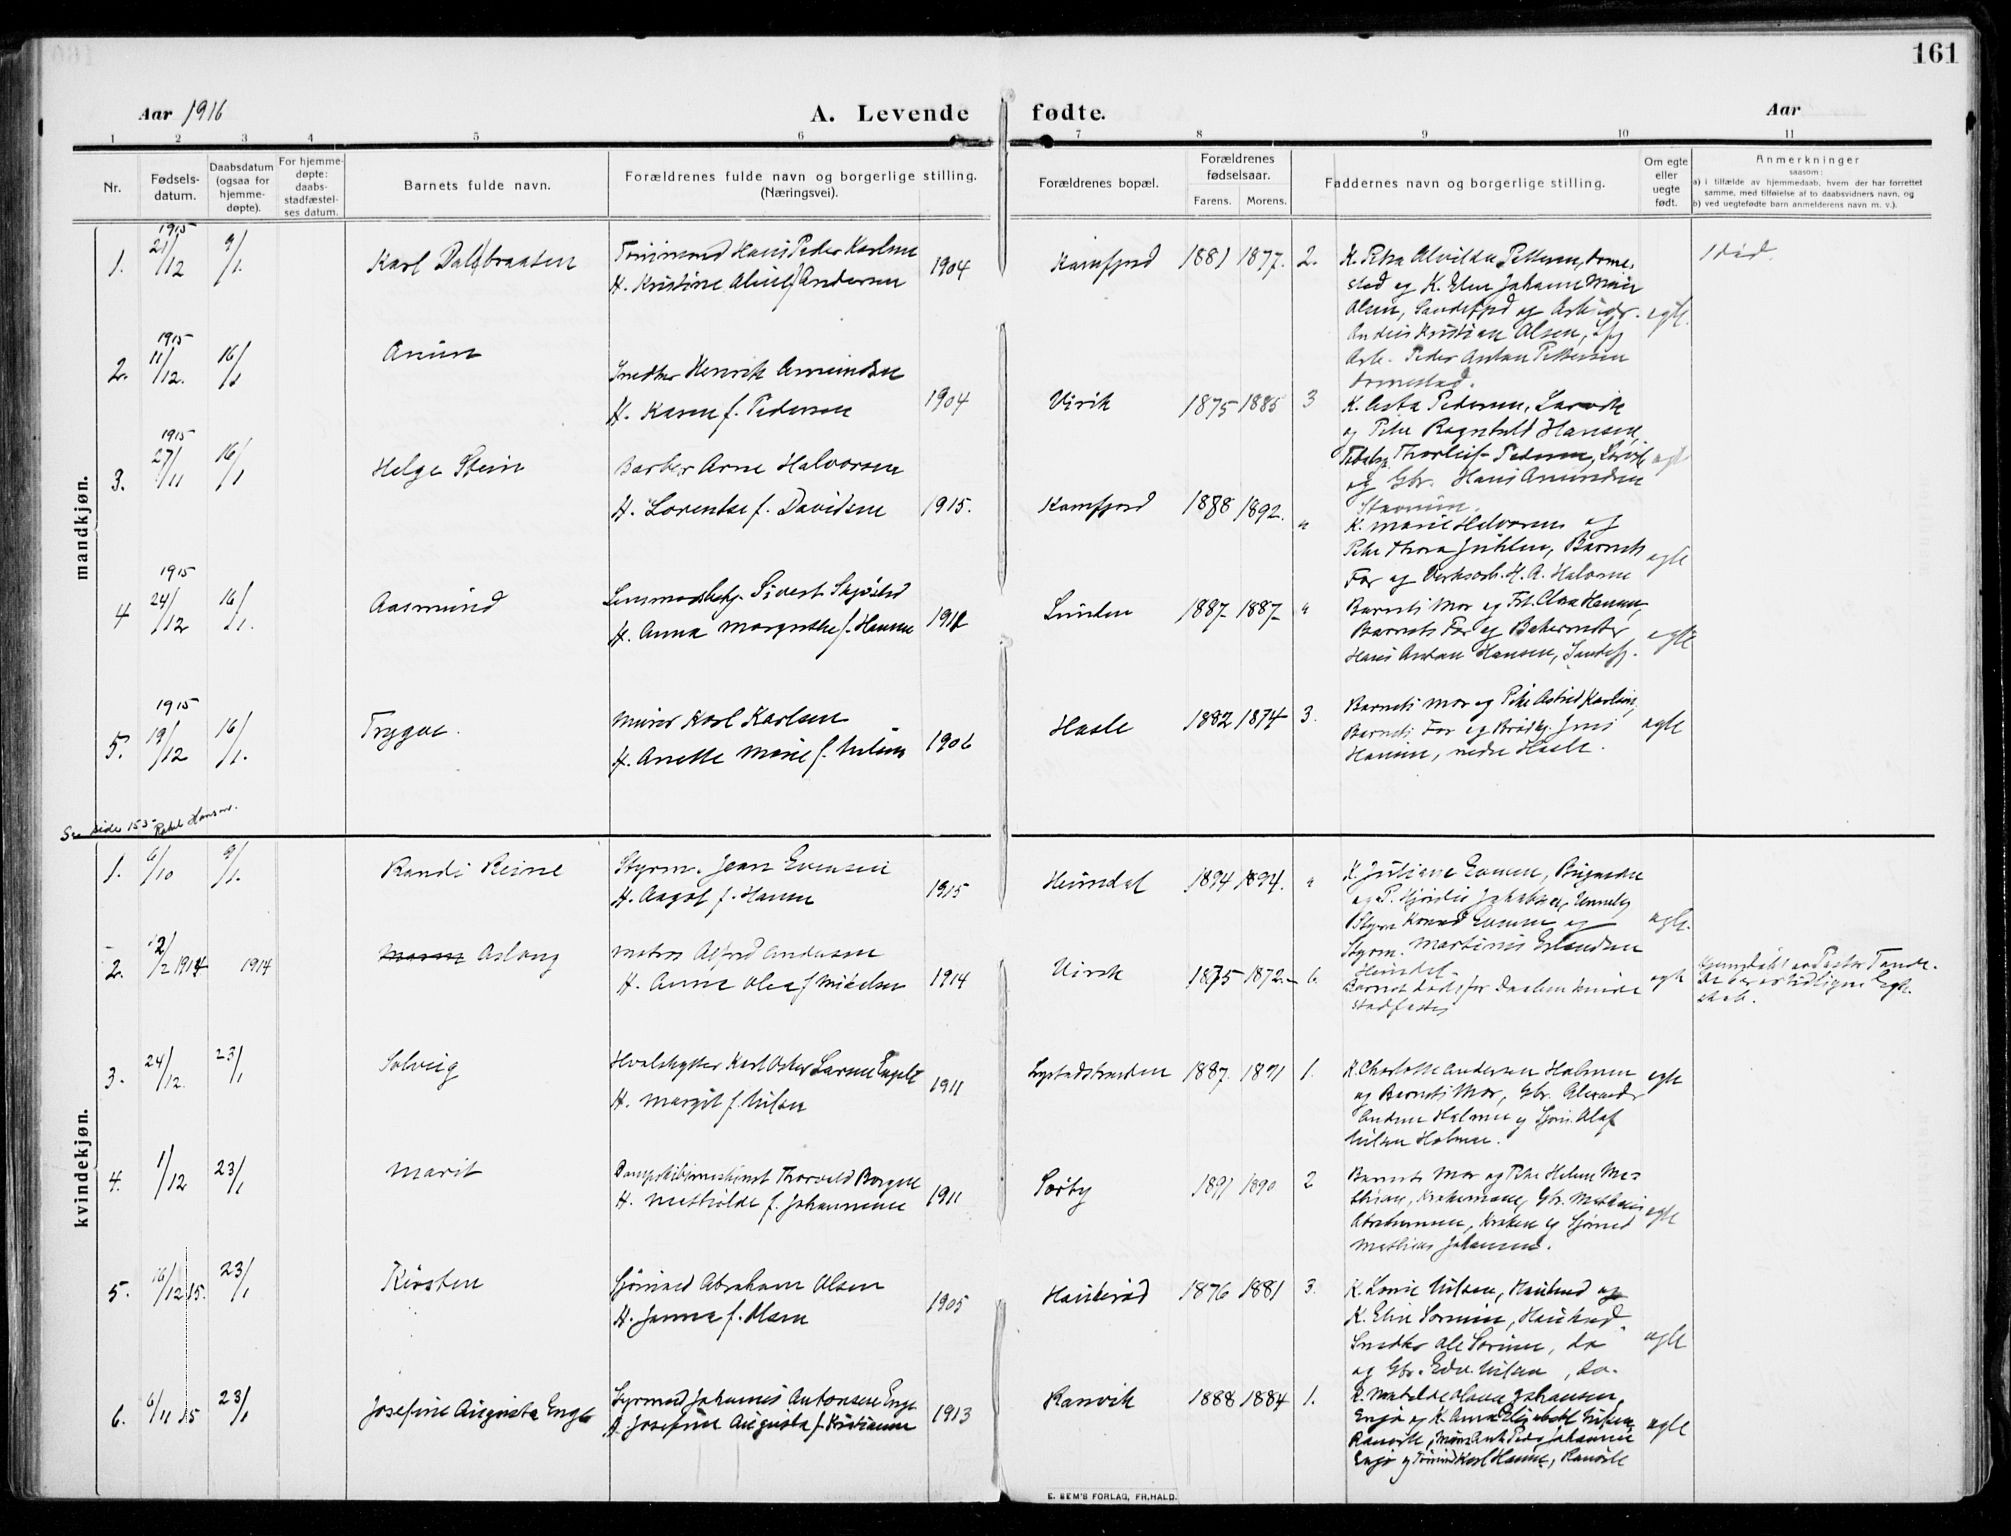 161
Aar 1916
A. Levende fødte.
Aar
1 2 3 4 5 6 7 8 9 10 11
Nr.
Fødsels-
datum.
Daabsdatum
(ogsaa for
hjemme-
døpte).
For hjemme-
døpte:
daabs-
stadfæstel-
ses datum.
Barnets fulde navn.
Forældrenes fulde navn og borgerlige stilling.
(Næringsvei).
Forældrenes bopæl.
Forældrenes
fødselsaar.
Farens. Morens.
Faddernes navn og borgerlige stilling.
Om egte
eller
uegte
født.
Anmerkninger
saasom:
a) i tilfælde av hjemmedaab, hvem der har forrettet
samme, med tilføielse af to daabsvidners navn, og
b) ved uegtefødte barn anmelderens navn m. v.).
mandkjøn.
1. 1915 21/12 9/1. Karl Dalsbraaten
Tømmermand Hans Peder Karlsen
H. Kristine Alvilde f. Andersen 1904
Kamfjord 1881 1877. 2.
K. Petra Alvilda Pettersen, Orme-
stad og K. Elen Johanne Marie
Olsen, Sandefjord og Arbeider
Anders Kristian Olsen,
Arb. Peder Anton Pettersen
Ormestad.
egte.
1 død.
2. 1915 11/12. 16/1
Snedker Henrik Amundsen
H. Karen f. Pedersen 1904
Virik 1875 1885 3
K. Asta Pedersen, Larvik
og Pike Ragnhild Hansen,
Thorleif Pedersen, Larvik
og Gbr. Hans Amundsen
egte
3. 1915 27/11 16/1 Helge Stein
Barber Arne Halvorsen
H. Lorentse f. Davidsen 1915.
Kamfjord 1888 1892. "
K. Marie Halvorsen og
Pike Thora Juhlen, Barnets
Far og Verksarb. H. A. Halvorsen
egte
4 1915 24/12 16/1. Aasmund
Lensmandsbetj. Sivert Skjøtskift
H. Anna Margrethe f. Hansen 1912
Linden 1887 - 1887 - "
Barnets Mor og Frk. Clara Hansen,
Barnets Far og Bakermester
Hans Anton Hansen, Sandefj.
egte
5. 1915 19/12 16/1. Trygve.
Murer Karl Karlsen
H. Anette Marie f. Nilsen 1906
Hasle 1882 1874 3.
Barnets Mor og Pike Astrid Karlsen,
Barnets Far og Jens
Hansen, nedre Hasle.
egte
Se side 153 - Rakel Hansen.
kvindekjøn.
1. 6/10 9/1. Randi Reine
Styrm. Jean Evensen
H. Aagot f. Hansen 1915
Heimdal 1894 1894. "
K. Juliane Evensen,
og P. Hjørdis Jakobsen, Unneberg
Styrm. Konrad Evensen og
Styrm. Martinus Erlandsen
Heimdal
egte.
2. 12/2 1914 1914 Aslaug
Matros Alfred Andersen
H. Anna Olea f. Mikelsen 1914
Virik 1875 1872. - 6.
Barnet døde før Daaben kunde
stadfæstes
egte
Hjemdøbt av Pastor Tande.
De 5 er av tidligere Egte-
skab.
3. 24/12. 23/1 Solveig
Hvalskytter Karl Oskar Larsen Engelø
H. Margit f. Nilsen 1911
Lystadstranden 1887. 1891 1.
K. Charlotte Andersen Holmen
og Barnets Mor, Gbr. Alexander
Andersen Holmen og Sjøm. Olaf
Nilsen Holmen.
egte
4. 1/12 23/1 Marit
Dampskibsmaskinist Thorvald Borgen
H. Methilde f. Johannesen 1911
Sørby 1891 1890 2
Barnets Mor og Pike Helene Ma-
thisen, Krakemoen, Gbr. Mathias
Abrahamsen, Kraken og Sjømand
Mathias Johannesen.
egte
5. 16/12 15. 23/1 Kirsten
Sjømand Abraham Olsen
H. Janna f. Olsen 1905
Haukerød 1876 1881 3.
K. Lovise Nilsen, Haukerød og
K. Elise Sørensen, Haukerød
Snedker Ole Sørensen, do
og Gbr. Edv. Nilsen, do.
egte
6. 6/11 15 23/1 Josefine Augusta Engø
Styrmand Johannes Antonsen Engø
H. Josefine Augusta f. Kristiansen 1913
Ranvik 1888 1884 1.
K. Matilde Olava Johansen,
Engø og K. Anna Elisabeth Nilsen,
Ranvik, Peder Johannes
Engø og Tømmermand Karl Hansen, Ranvik
egte
E. SEM'S FORLAG, FR.HALD.